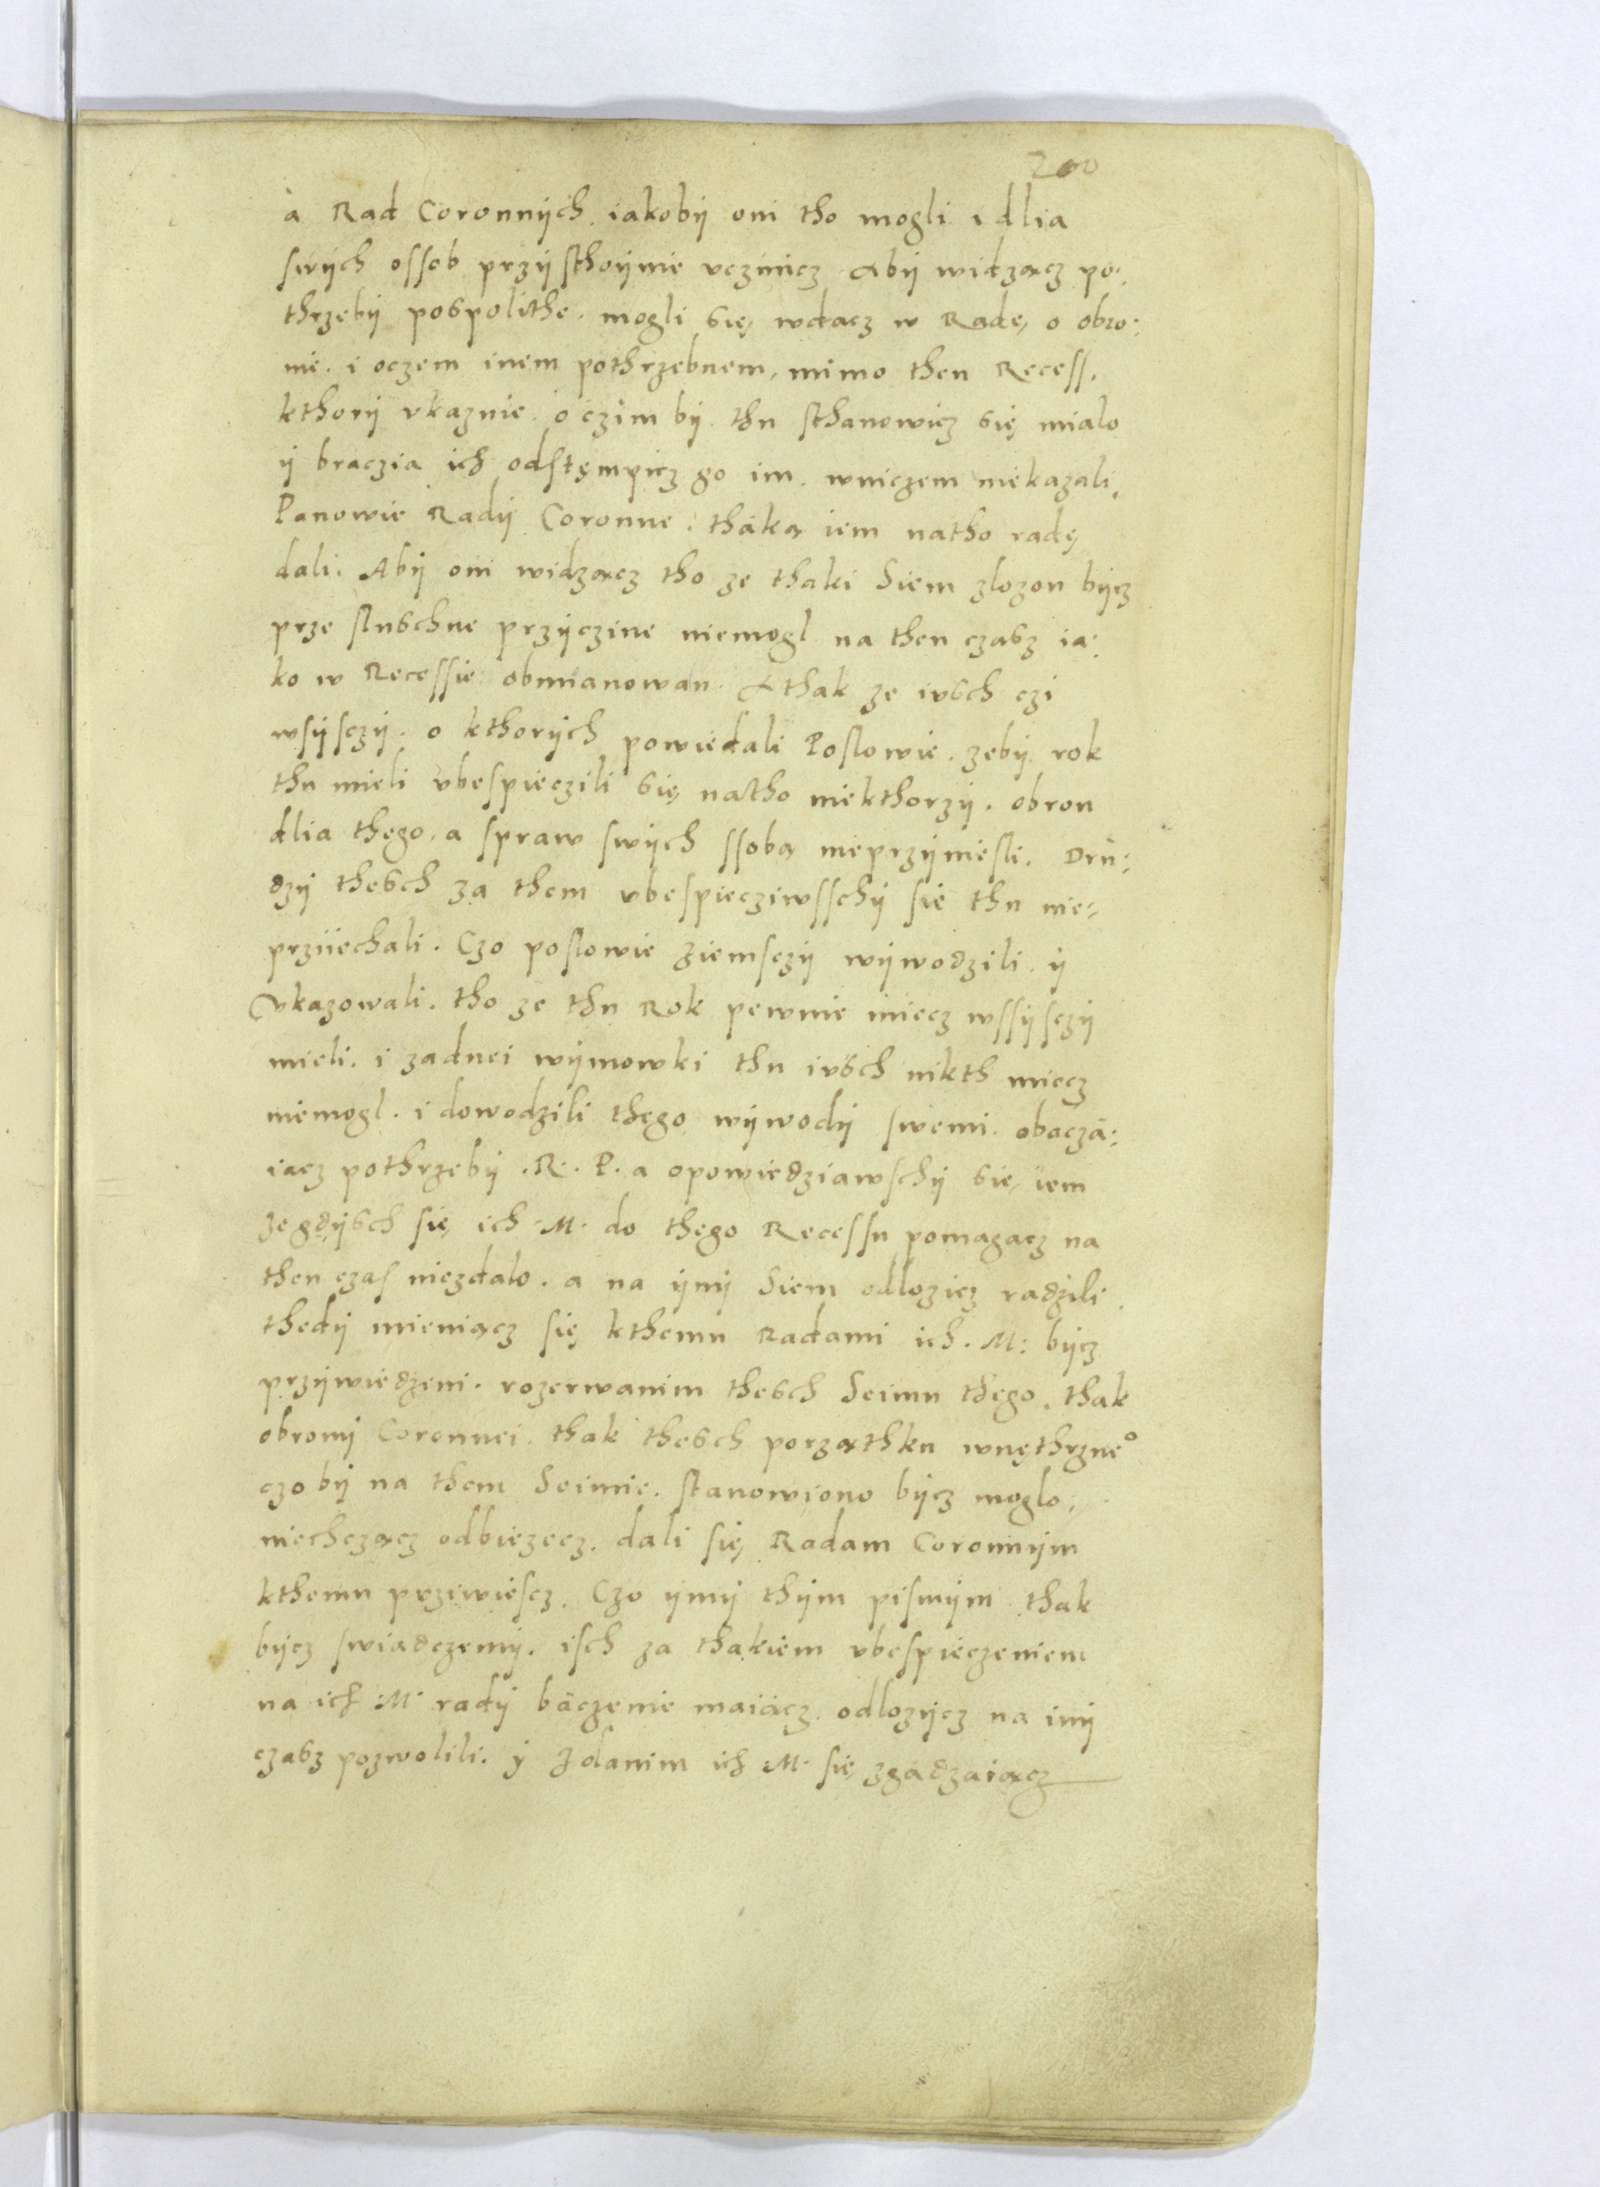 200
à Rad Coronnÿch iakobÿ oni tho mogli i dlia
swÿch ossob przÿsthoÿnie vczinicz Abÿ widzącz po:
thrzebÿ pospolithe. mogli się wdacz w Radę, o obro:
nie. i oczem inem pothrzebnem, mimo then Recess.
kthorÿ vkaznie o czim bÿ thu sthanowicz się mialo
ÿ braczia ich odstęmpicz go im wniczem niekazali,
Panowie Radÿ Coronne. thaką iem natho radę
dali. Abÿ oni widzącz tho ze thaki Siem zlozon bÿcz
prze sluschne przÿczine niemogl na then czasz ia:
ko w Recessie obmianowan. A thak ze iusch czi
wsÿsczÿ. o kthorÿch powiedali Poslowie. zebÿ rok
thu mieli vbespieczili się natho niekthorzÿ. obron
dlia thego, a spraw swÿch ssobą nieprzÿniesli. Dru:
dzÿ thesch za them vbespiecziwsschÿ się thu nie=
prziiechali. Czo poslowie ziemsczÿ wÿwodzili ÿ
Vkazowali. tho ze thu Rok pewnie miecz wssÿsczÿ
mieli. i zadnei wÿmowki thu iusch nikth miecz
niemogl. i dowodzili thego wÿwodÿ swemi. obacza:
iacz pothrzebÿ .R. P. a opowiedziawschÿ się iem
ze gdÿsch się ich .M. do thego Recessu pomagacz na
then czas niezdalo. a na ÿnÿ Siem odlozicz radzili
thedÿ mieniącz się kthemu Radami ich. M: bÿcz
przÿwiedzeni. rozerwanim thesch Seimu thego, thak
obronÿ Coronnei. thak thesch porzathku wnęthrzne°
czo bÿ na them Seimie. stanowiono bÿcz moglo,
niechczącz odbiezecz. dali się Radam Coronnÿm
kthemu prziwiescz. Czo ÿmÿ thÿm pismÿm thak
bÿcz swiadczemÿ. isch za thakiem vbespieczeniem
na ich .M. radÿ baczenie maiacz odlozÿcz na inÿ
czasz pozwolili. ÿ zdanim ich M. się zgadzaiącz